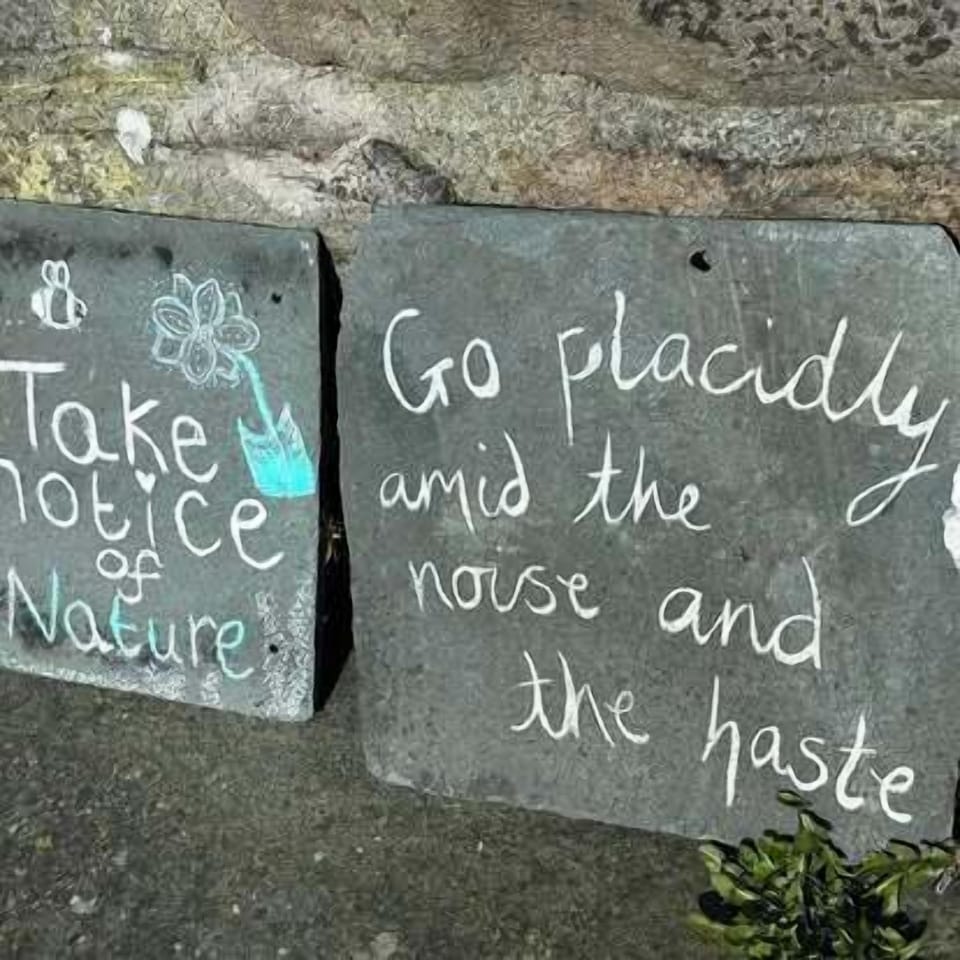 Take
notice
of
Nature
Go placidly
amid the
noise and
the haste